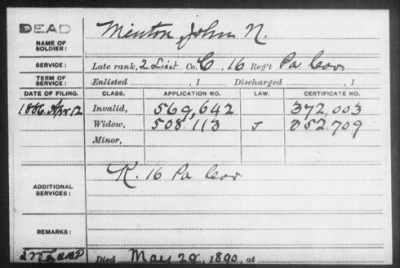 DEAD
NAME OF SOLDIER: Minton John N.
SERVICE: Late rank, 2 Lieut Co. C, 16 Reg't Pa Cav
TERM OF SERVICE: Enlisted , 1 Discharged , 1
DATE OF FILING. CLASS. APPLICATION NO. LAW. CERTIFICATE NO.
1886 Apr 12 Invalid, 569,642 372,003
Widow, 508 113 352,709
Minor,
ADDITIONAL SERVICES: K. 16 Pa Cav
REMARKS:
Died May 29, 1890, at